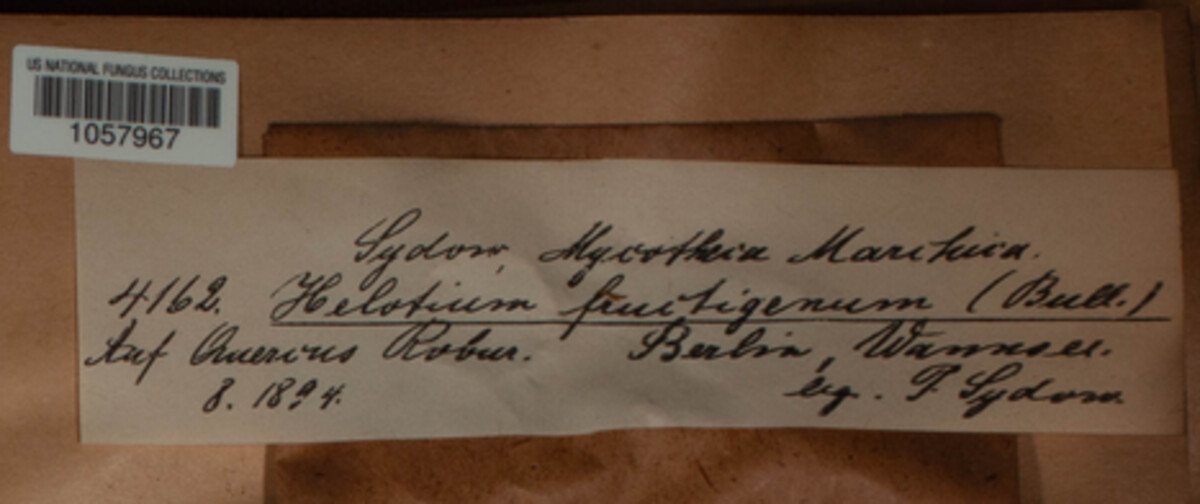 US NATIONAL FUNGUS COLLECTIONS
1057967
Sydow, Mycotheca Marchica.
4162. Helotium fructigenum (Bull.)
Auf Quercus Robur. Berlin, Wannsee.
8. 1894. leg. P. Sydow.